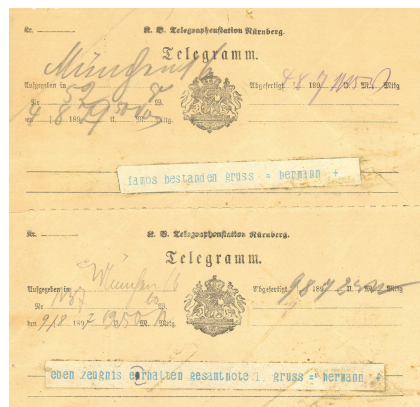 Nr. K. B. Telegraphenstation Nürnberg.
Telegramm.
München
Aufgegeben in Abgefertigt 4 8 189 7 U. M. Mitg
Nr
4 8 189 U. Mttg.
famos bestanden gruss = hermann +
Nr. K. B. Telegraphenstation Nürnberg.
Telegramm.
München 16
Aufgegeben in Abgefertigt 9 8 189 7 U. M. Mttg
Nr
den 9/8 189 7 U. M. Mttg.
eben zeugnis erhatten gesamtnote 1. gruss = hermann +